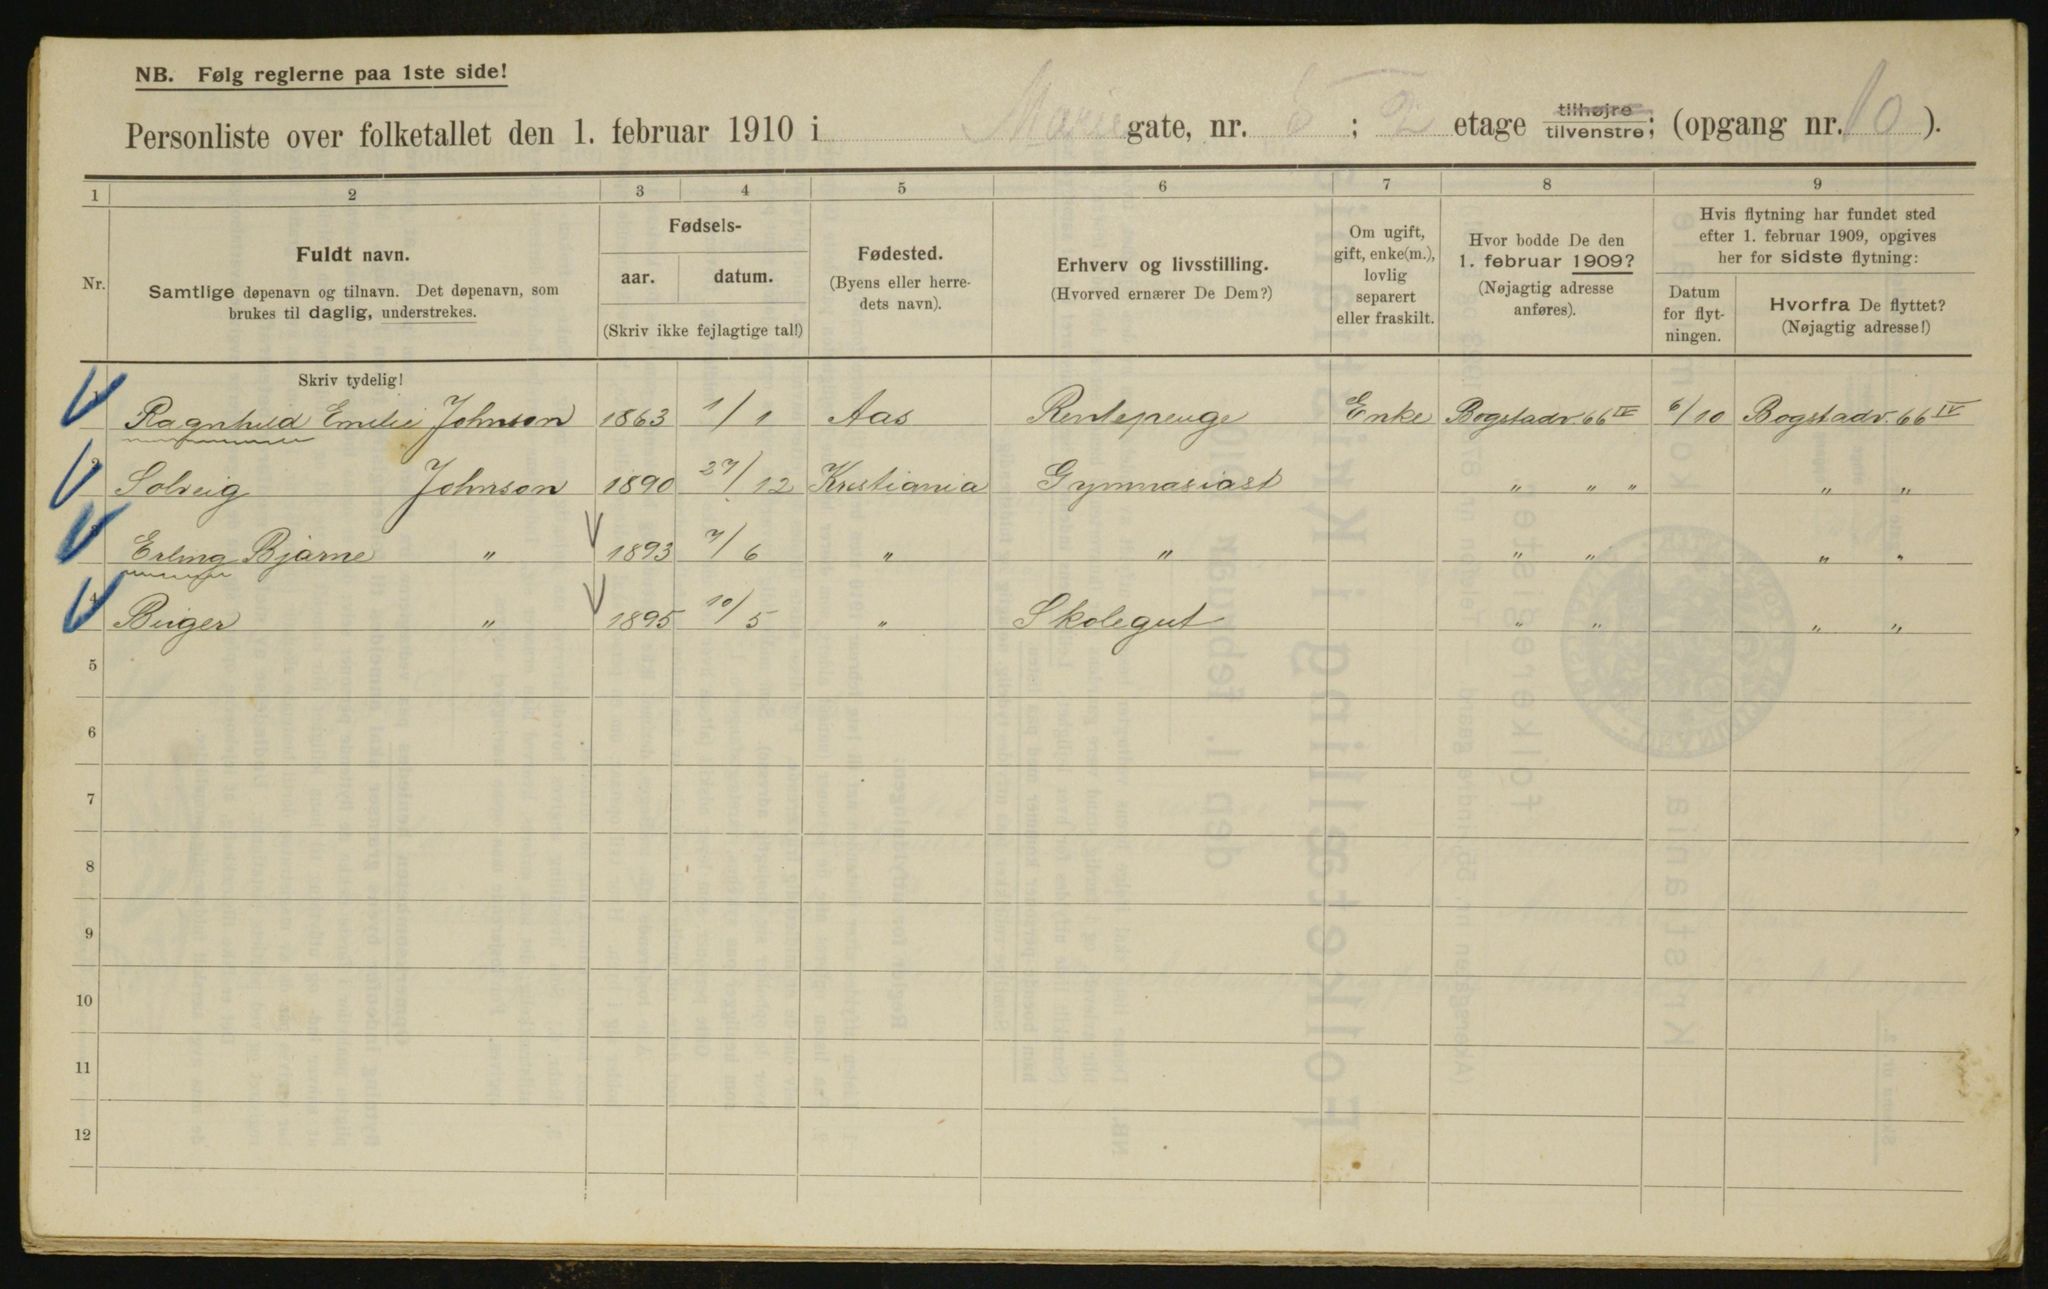 NB. Følg reglerne paa 1ste side!
Personliste over folketallet den 1. februar 1910 i Marie gate, nr. 5 ; 2 etage tilhøjre tilvenstre; (opgang nr. 10 ).
1 2 3 4 5 6 7 8 9
Nr.
Fuldt navn.
Samtlige døpenavn og tilnavn. Det døpenavn, som
brukes til daglig, understrekes.
Fødsels-
aar. datum.
(Skriv ikke fejlagtige tal!)
Fødested.
(Byens eller herre-
dets navn).
Erhverv og livsstilling.
(Hvorved ernærer De Dem?)
Om ugift,
gift, enke(m.),
lovlig
separert
eller fraskilt.
Hvor bodde De den
1. februar 1909?
(Nøjagtig adresse
anføres).
Hvis flytning har fundet sted
efter 1. februar 1909, opgives
her for sidste flytning:
Datum
for flyt-
ningen.
Hvorfra De flyttet?
(Nøjagtig adresse!)
Skriv tydelig!
Ragnhild Emilie Johnson 1863 1/1 Aas Rentepenge Enke Bogstadv. 66 IV 6/10 Bogstadv. 66 IV
2 Solveig Johnson 1890 27/12 Kristiania Gymnasiast " " " " "
3 Erling Bjarne " 1893 7/6 " " " " " "
4 Birger " 1895 10/5 " Skolegut " " " "
5
6
7
8
9
10
11
12